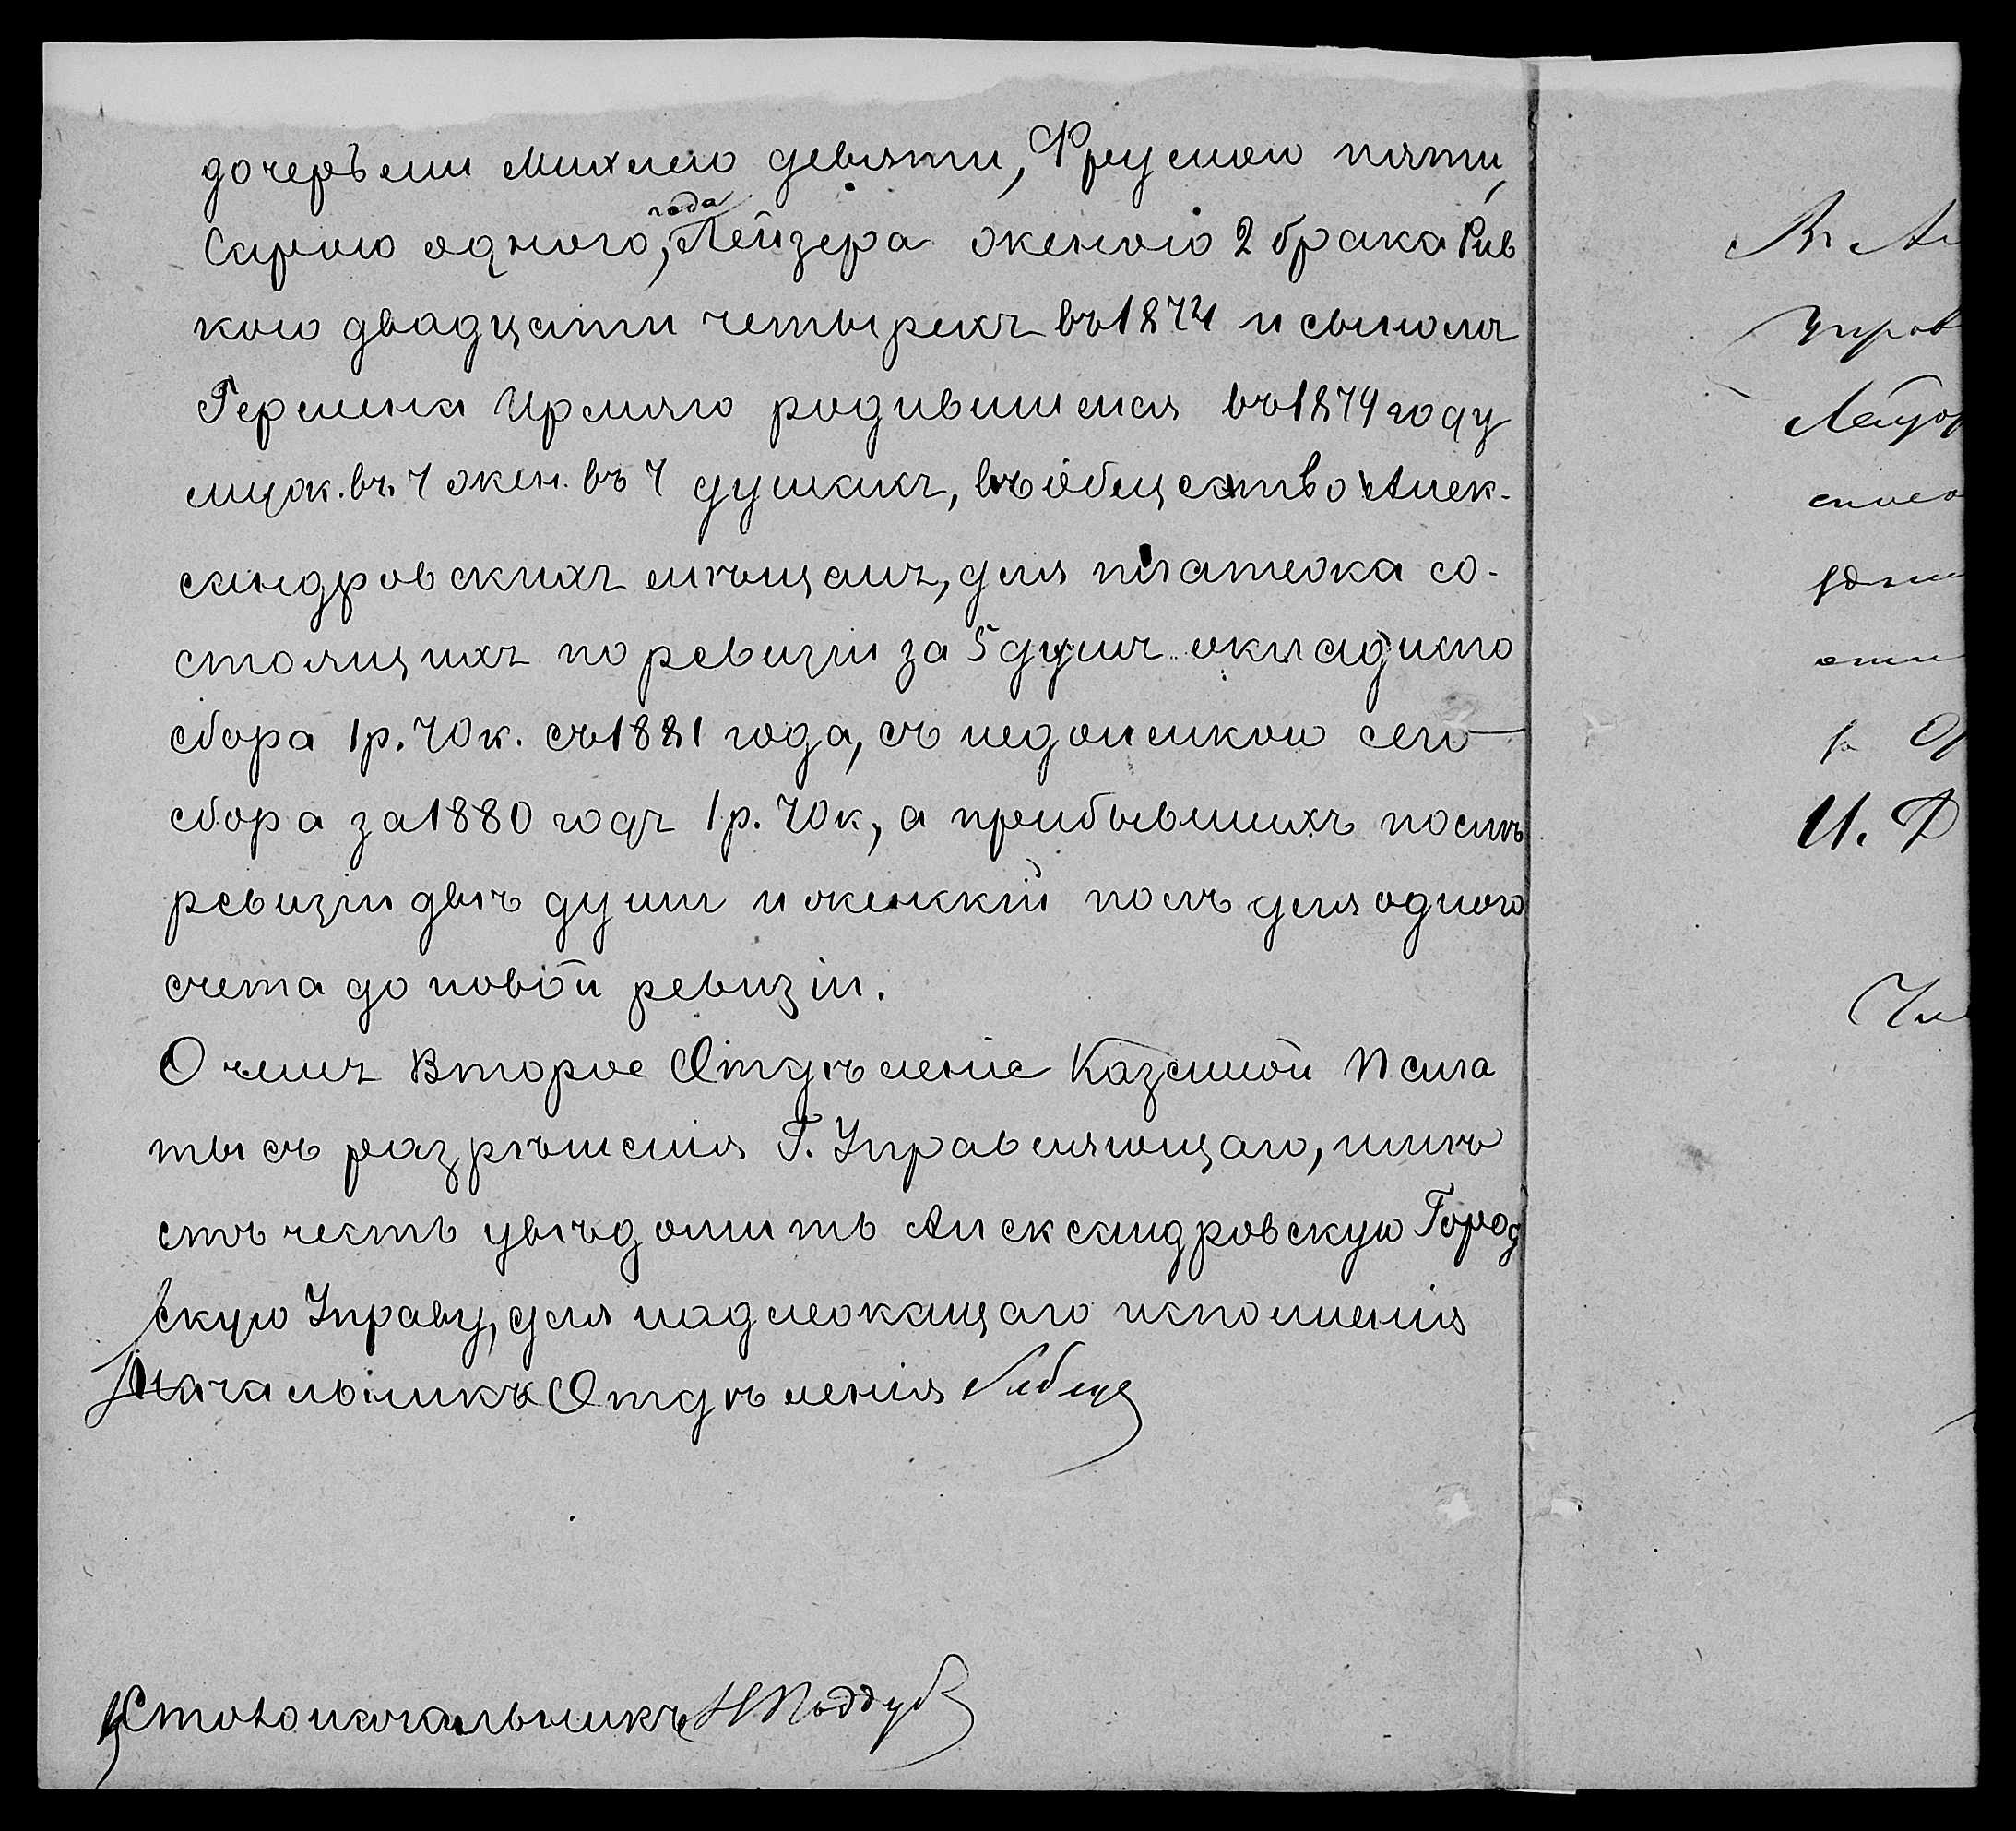 дочерьми Михлею девяти, Фрумою пяти,
Сарою одного года, Лейзера женою 2 брака Рив
кою двадцати четырехъ въ 1874 и сыномъ
Гершена Ирмяго родившимся въ 1874 году
муж. въ 7 жен. въ 7 душахъ, въ общество Алек-
сандровскихъ мѣщанъ, для платежа со-
стоящихъ по ревизіи за 5 душъ окладнаго
сбора 1 р. 70 к. съ 1881 года, съ недоимкою сего
сбора за 1880 годъ 1 р. 70 к, а прибывшихъ послѣ
ревизіи двѣ души и женскій полъ для одного
счета до новой ревизіи.
О чемъ Второе Отдѣленіе Казенной Пала
ты съ разрѣшенія Г. Управляющаго, имѣ
етъ честь увѣдомить Александровскую Город
скую Управу, для надлежащаго исполненія
Начальникъ Отдѣленія
Столоначальникъ Н Поддуб
Въ Ал
Управ
И. Д